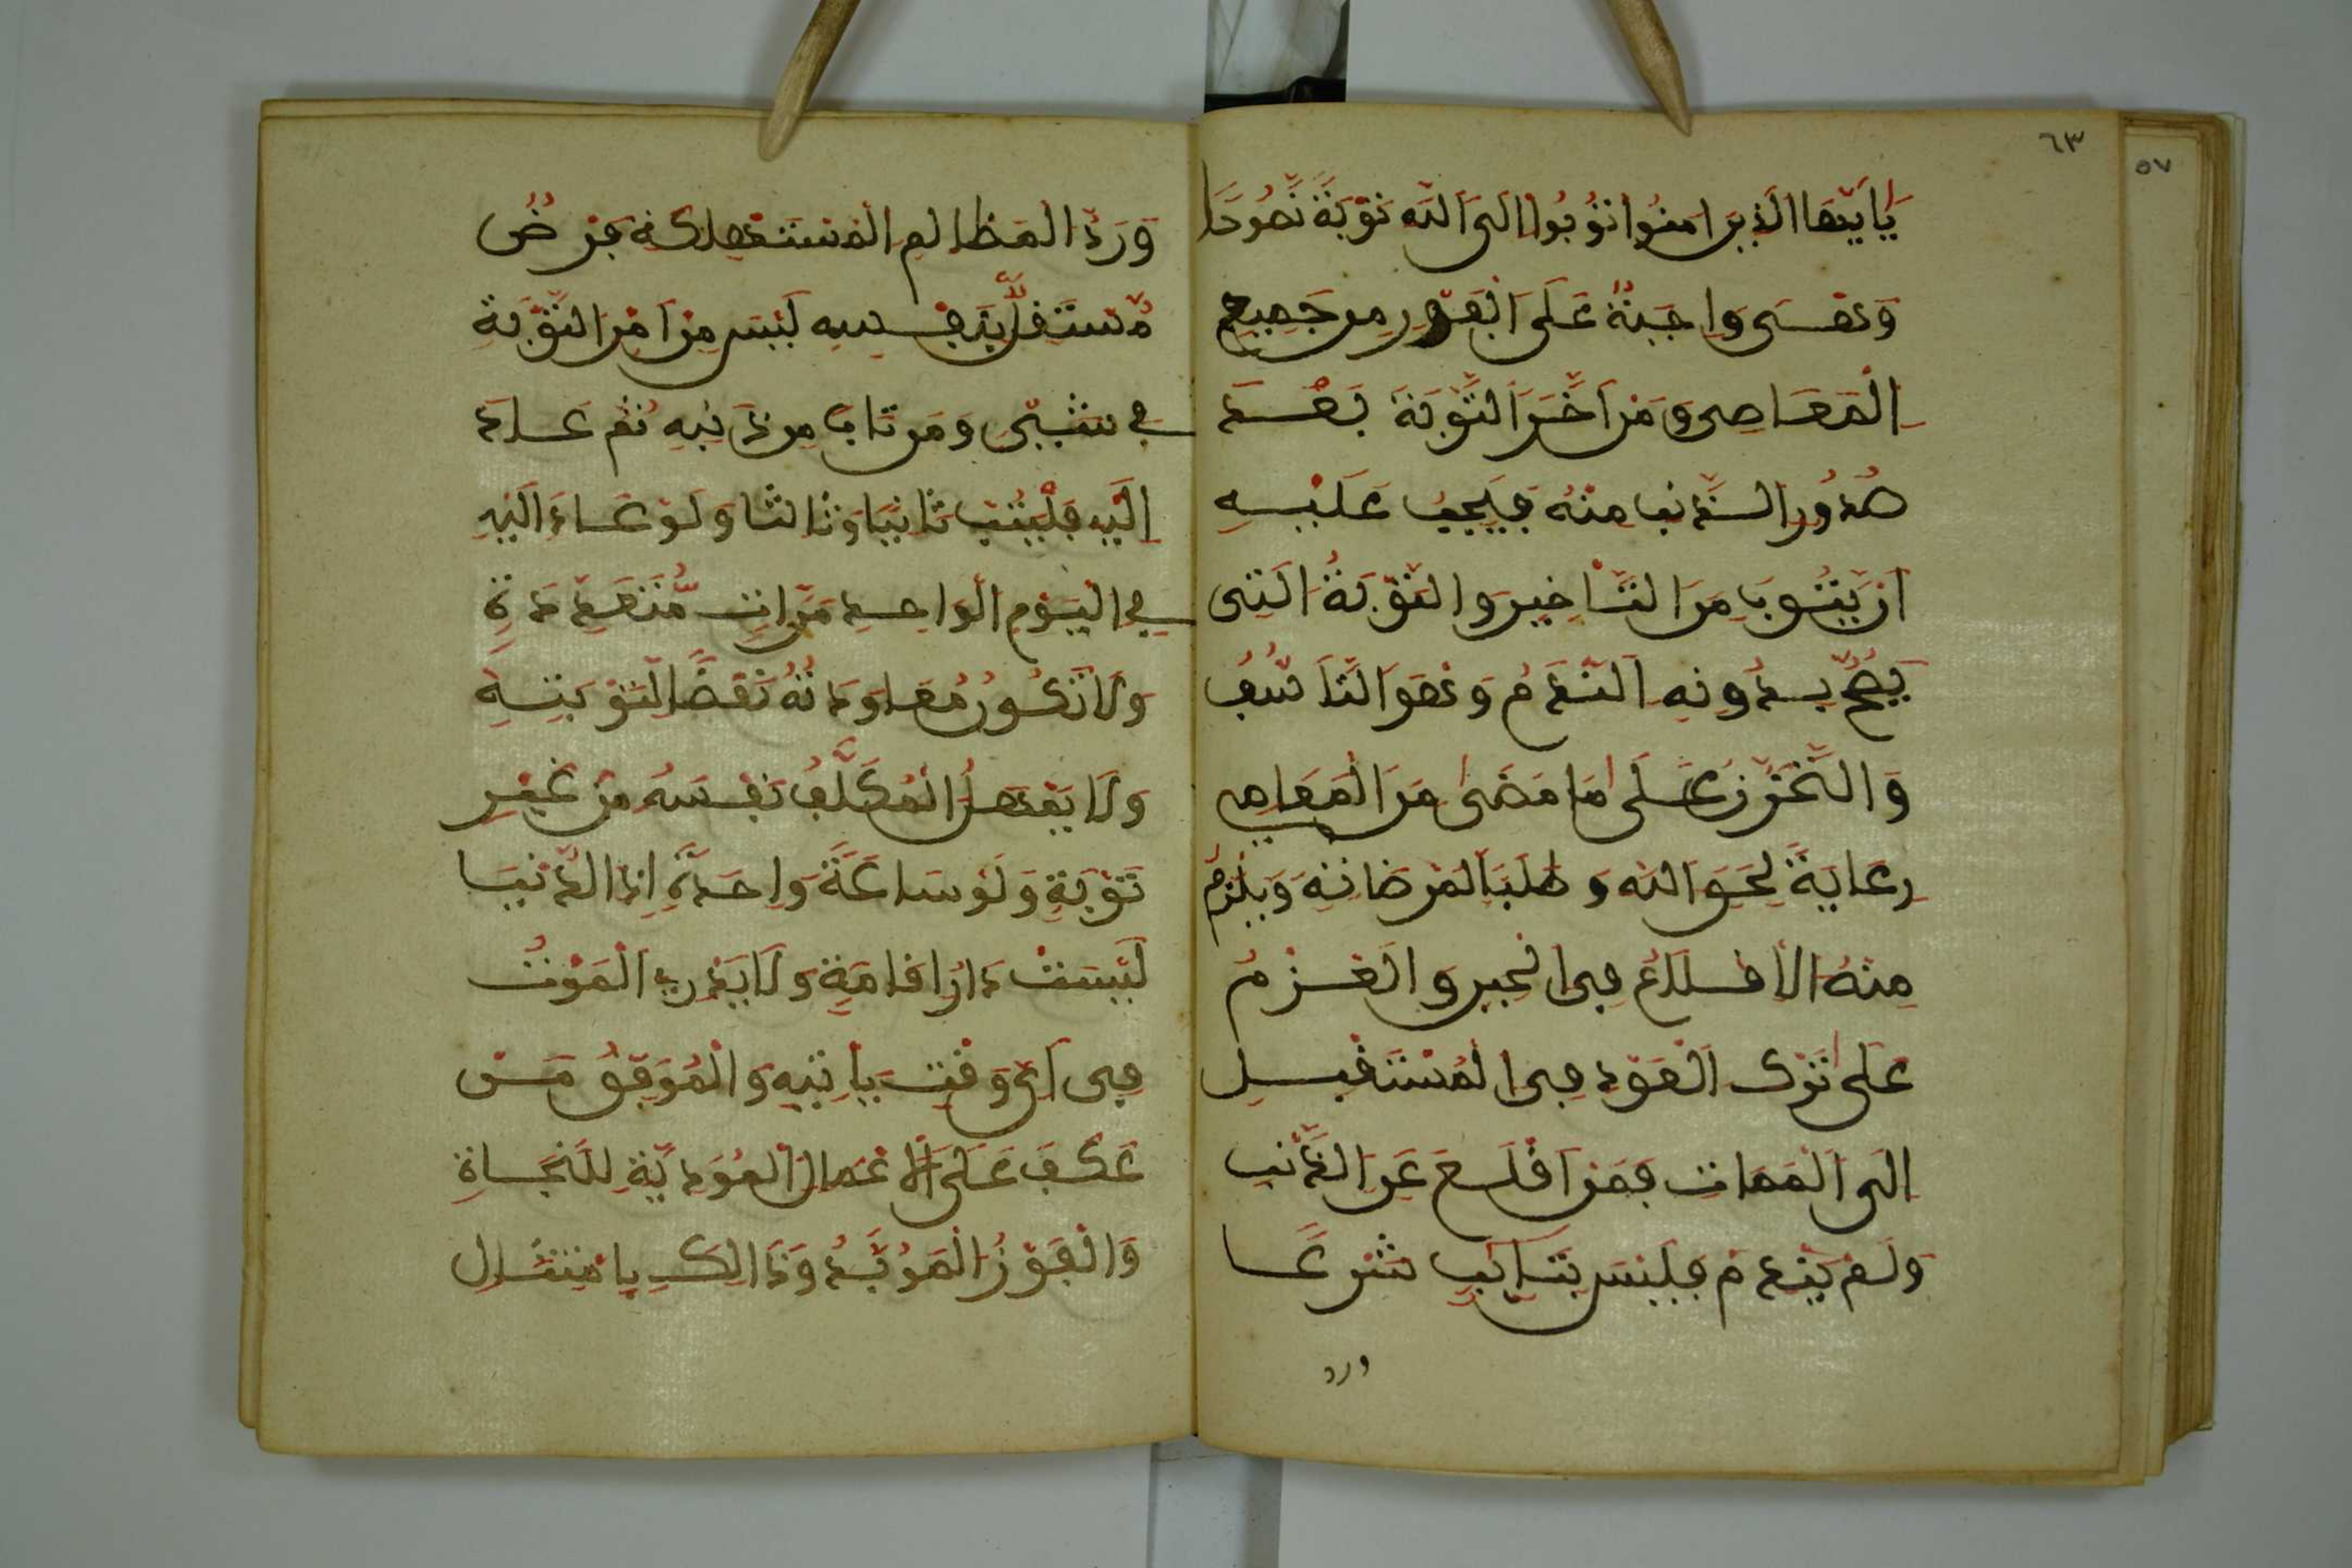 ٦٣
٥٧
يَٰأَيُّهَا الَّذِينَ ءَامَنُوا تُوبُوا إِلَى اللَّهِ تَوْبَةً نَّصُوحًا
وَهِيَ وَاجِبَةٌ عَلَى الْفَوْرِ مِن جَمِيعِ
الْمَعَاصِي وَمَنْ أَخَّرَ التَّوْبَةَ بَعْدَ
صُدُورِ الذَّنبِ مِنْهُ فَيَجِبُ عَلَيْهِ
أَن يَتُوبَ مِنَ التَّأْخِيرِ وَالتَّوْبَةُ الَّتِي
النَّدَمُ وَهُوَ التَّأَسُّفُ
وَالتَّحَزُّنُ عَلَى مَا مَضَى مِنَ الْمَعَاصِي
رِعَايَةً لِحَقِّ اللَّهِ وَطَلَبًا لِمَرْضَاتِهِ وَيَلْزَمُ
مِنْهُ الْإِقْلَاعُ فِي الْحِينِ وَالْعَزْمُ
عَلَى تَرْكِ الْعَوْدِ فِي الْمُسْتَقْبَلِ
إِلَى الْمَمَاتِ فَمَنْ أَقْلَعَ عَنِ الذَّنبِ
وَلَمْ يَنْدَمْ فَلَيْسَ بِتَائِبٍ شَرْعًا
ورد
وَرَدُّ الْمَظَالِمِ الْمُسْتَهْلَكَةِ فَرْضٌ
مُّسْتَقِلٌّ بِنَفْسِهِ لَيْسَ مِنْ أَمْرِ التَّوْبَةِ
فِي شَيْءٍ وَمَن تَابَ مِن ذَنبِهِ ثُمَّ عَادَ
إِلَيْهِ فَلْيَتُبْ ثَانِيًا وَثَالِثًا وَلَوْ عَادَ إِلَيْهِ
فِي الْيَوْمِ الْوَاحِدِ مَرَّاتٍ مُّتَعَدِّدَةٍ
وَلَا تَكُونُ مُعَاوَدَتُهُ نَقْضًا لِتَوْبَتِهِ
وَلَا يُمْهِلُ الْمُكَلَّفُ نَفْسَهُ مِنْ غَيْرِ
تَوْبَةٍ وَلَوْ سَاعَةً وَاحِدَةً إِذِ الدُّنْيَا
لَيْسَتْ دَارَ إِقَامَةٍ وَلَا يَدْرِي الْمَوْتُ
فِي أَيِّ وَقْتٍ يَأْتِيهِ وَالْمُوَفَّقُ مَن
عَكَفَ عَلَى الْأَعْمَالِ الْمُؤَدِّيَةِ لِلنَّجَاةِ
وَالْفَوْزِ الْمُؤَبَّدِ وَذَالِكَ بِامْتِثَالِ